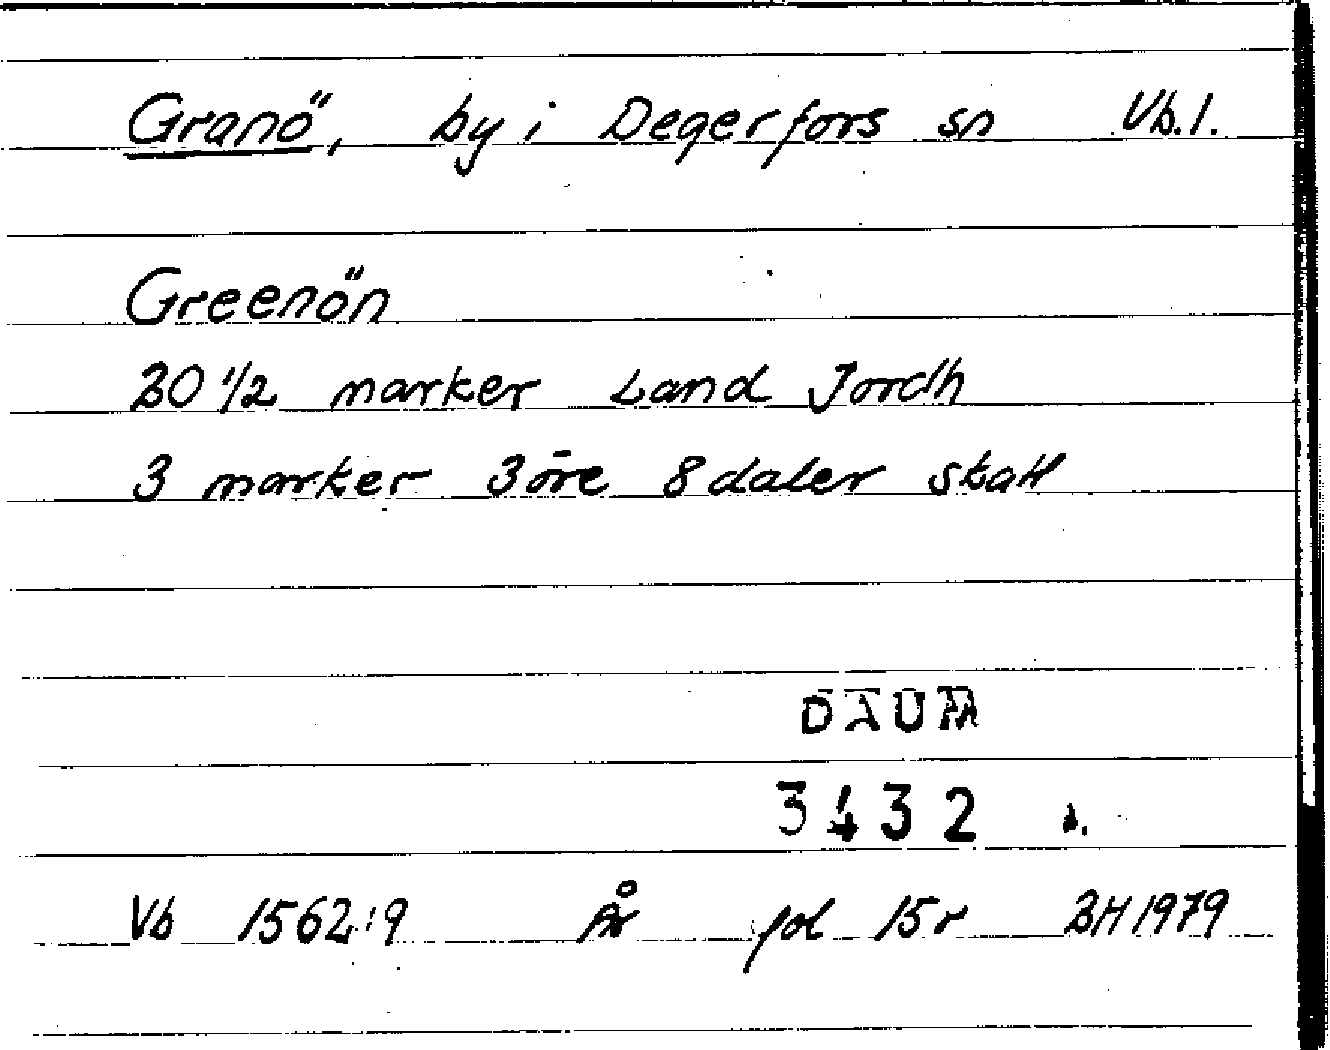 Granö, by i Degerfors sn Vb.l.
Greenön
30 1/2 marker Land Jordh
3 marker 3 öre 8 daler skatt
DAUM
3432
Vb 1562:9 År fol 15r BH 1979